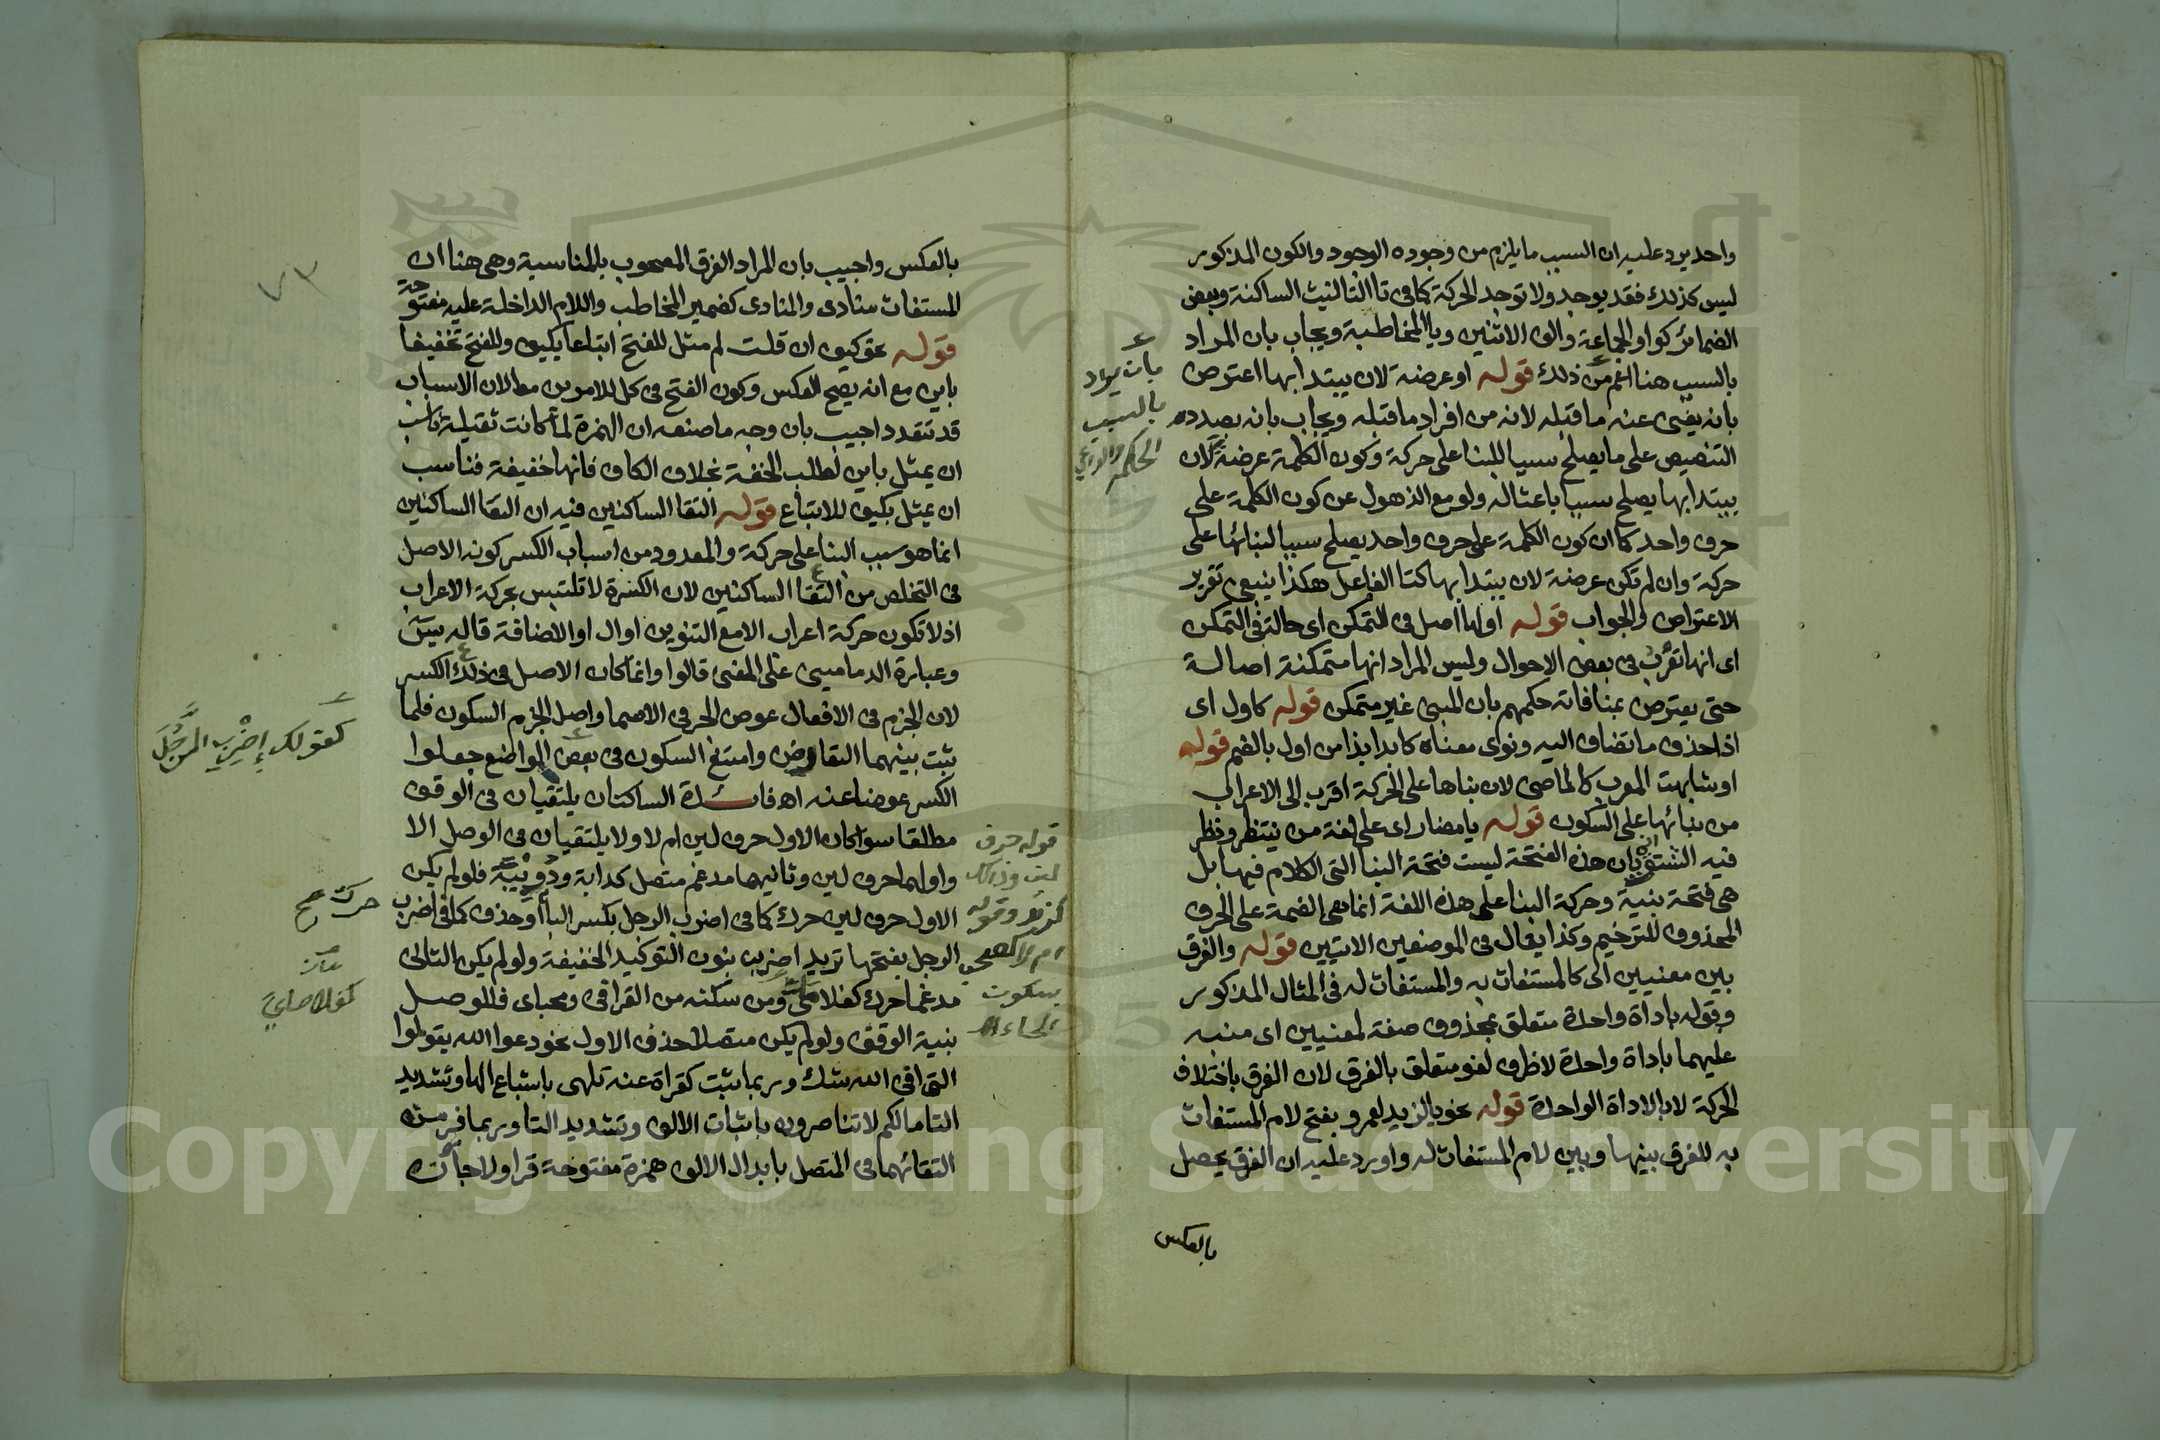 واحد يرد عليه ان السبب ما يلزم من وجوده الوجود والكون المذكور
ليس كذلك فقد يوجد ولا توجد الحركة كما في تا التانيث الساكنة وبعض
الضمائر كواو الجماعة والف الاثنين ويا المخاطبة ويجاب بان المراد
بالسبب هنا اعم من ذلك قوله او عرضة لان يبتدا بها اعترض
بانه يغني عنه ما قبله لانه من افراد ما قبله ويجاب بانه بصدده
التنصيص على ما يصلح سببا للبنا على حركة وكون الكلمة عرضة لان
يبتدا بها يصلح سببا باعتباله ولو مع الذهول عن كون الكلمة على
حرف واحد كما ان كون الكلمة على حرف واحد يصلح سببا لبنائها على
حركة وان لم تكن عرضة لان يبتدا بها كتا الفاعل هكذا ينبغي تقرير
الاعتراض والجواب قوله او لها اصل في التمكن اي حالة في التمكن
اى انها تعرب في بعض الاحوال وليس المراد انها متمكنة اصالة
حتى يعترض بمنافاته حكمهم بان المبنى غير متمكن قوله كاول اى
اذا حذف ما تضاف اليه ونوى معناه كابدا بذا من اول بالضم قوله
او شابهت المعرب كالماضى لان بناها على الحركة اقرب الى الاعراب
من بنائها على السكون قوله يا مضار اى على لغة من ينتظر ونظر
فيه الشنواني بان هذه الفتحة ليست فتحة البنا التى الكلام فيها بل
هى فتحة بنية وحركة البنا على هذه اللغة انما هى الضمة على الحرف
المحذوف للترخيم وكذا يقال في الموضعين الاتيين قوله والفرق
بين معنيين الى كالمستغاث به والمستغاث له في المثال المذكور
وقوله باداة واحدة متعلق بمحذوف صفة لمعنيين اى منبه
عليهما باداة واحدة لا ظرف لغو متعلق بالفرق لان الفرق باختلاف
الحركة لا بالاداة الواحدة قوله نحو يا لزيد لعمرو بفتح لام المستغاث
به للفرق بينها وبين لام المستغاث له واورد عليه ان الفرق يحصل
بالعكس
بان يراد
بالسبب
بالعكس واجيب بان المراد الفرق المصحوب بالمناسبة وهى هنا ان
المستغاث منادى والمنادى كضمير المخاطب واللام الداخلة عليه مفتوحة
قوله نحو كيف ان قلت لم مثل للفتح اتباعا بكيف وللفتح تخفيفا
باين مع انه يصح العكس وكون الفتح في كل للامرين معا لان الاسباب
قد تتعدد اجيب بان وجه ما صنعه ان الهمزة لما كانت ثقيلة ناسب
ان يمثل باين لطلب الخفة بخلاف الكاف فانها خفيفة فناسب
ان يمثل بكيف للاتباع قوله التقا الساكنين فيه ان التقا الساكنين
انما هو سبب البنا على حركة والمعدود من اسباب الكسر كونه الاصل
في التخلص من التقا الساكنين لان الكسرة لا تلتبس بحركة الاعراب
اذ لا تكون حركة اعراب الا مع التنوين او ال او الاضافة قاله يس
وعبارة الدمامينى على المغنى قالوا وانما كان الاصل في ذلك الكسر
لان الجزم في الافعال عوض الجر في الاسما واصل الجزم السكون فلما
ثبت بينهما التقارض وامتنع السكون في بعض المواضع جعلوا
الكسر عوضا عنه اه فائدة الساكنان يلتقيان في الوقف
مطلقا سوا كان الاول حرف لين ام لا ولا يلتقيان في الوصل الا
واولهما حرف لين وثانيهما مدغم متصل كدابة ودويبة فلو لم يكن
الاول حرف لين حرك كما في اضرب الرجل بكسر البا او حذف كما في اضرب
الرجل بفتحها تريد اضربن بنون التوكيد الخفيفة ولو لم يكن التالى
مدغما حرك كغلاماى ومن سكنه من القرا في ومحياى فللوصل
بنية الوقف ولو لم يكن متصلا حذف الاول نحو دعوا الله يقولوا
التى افى الله شك وربما ثبت كقراة عنه تلهى باشباع الها وتشديد
التا مالكم لا تناصرون باثبات الالف وتشديد التا وربما فر من
التقائهما في المتصل بابدال الالف همزة مفتوحة قرا ولا جان
٧٣
كقولك اضرب الرجل
حرك صح
قوله حرف